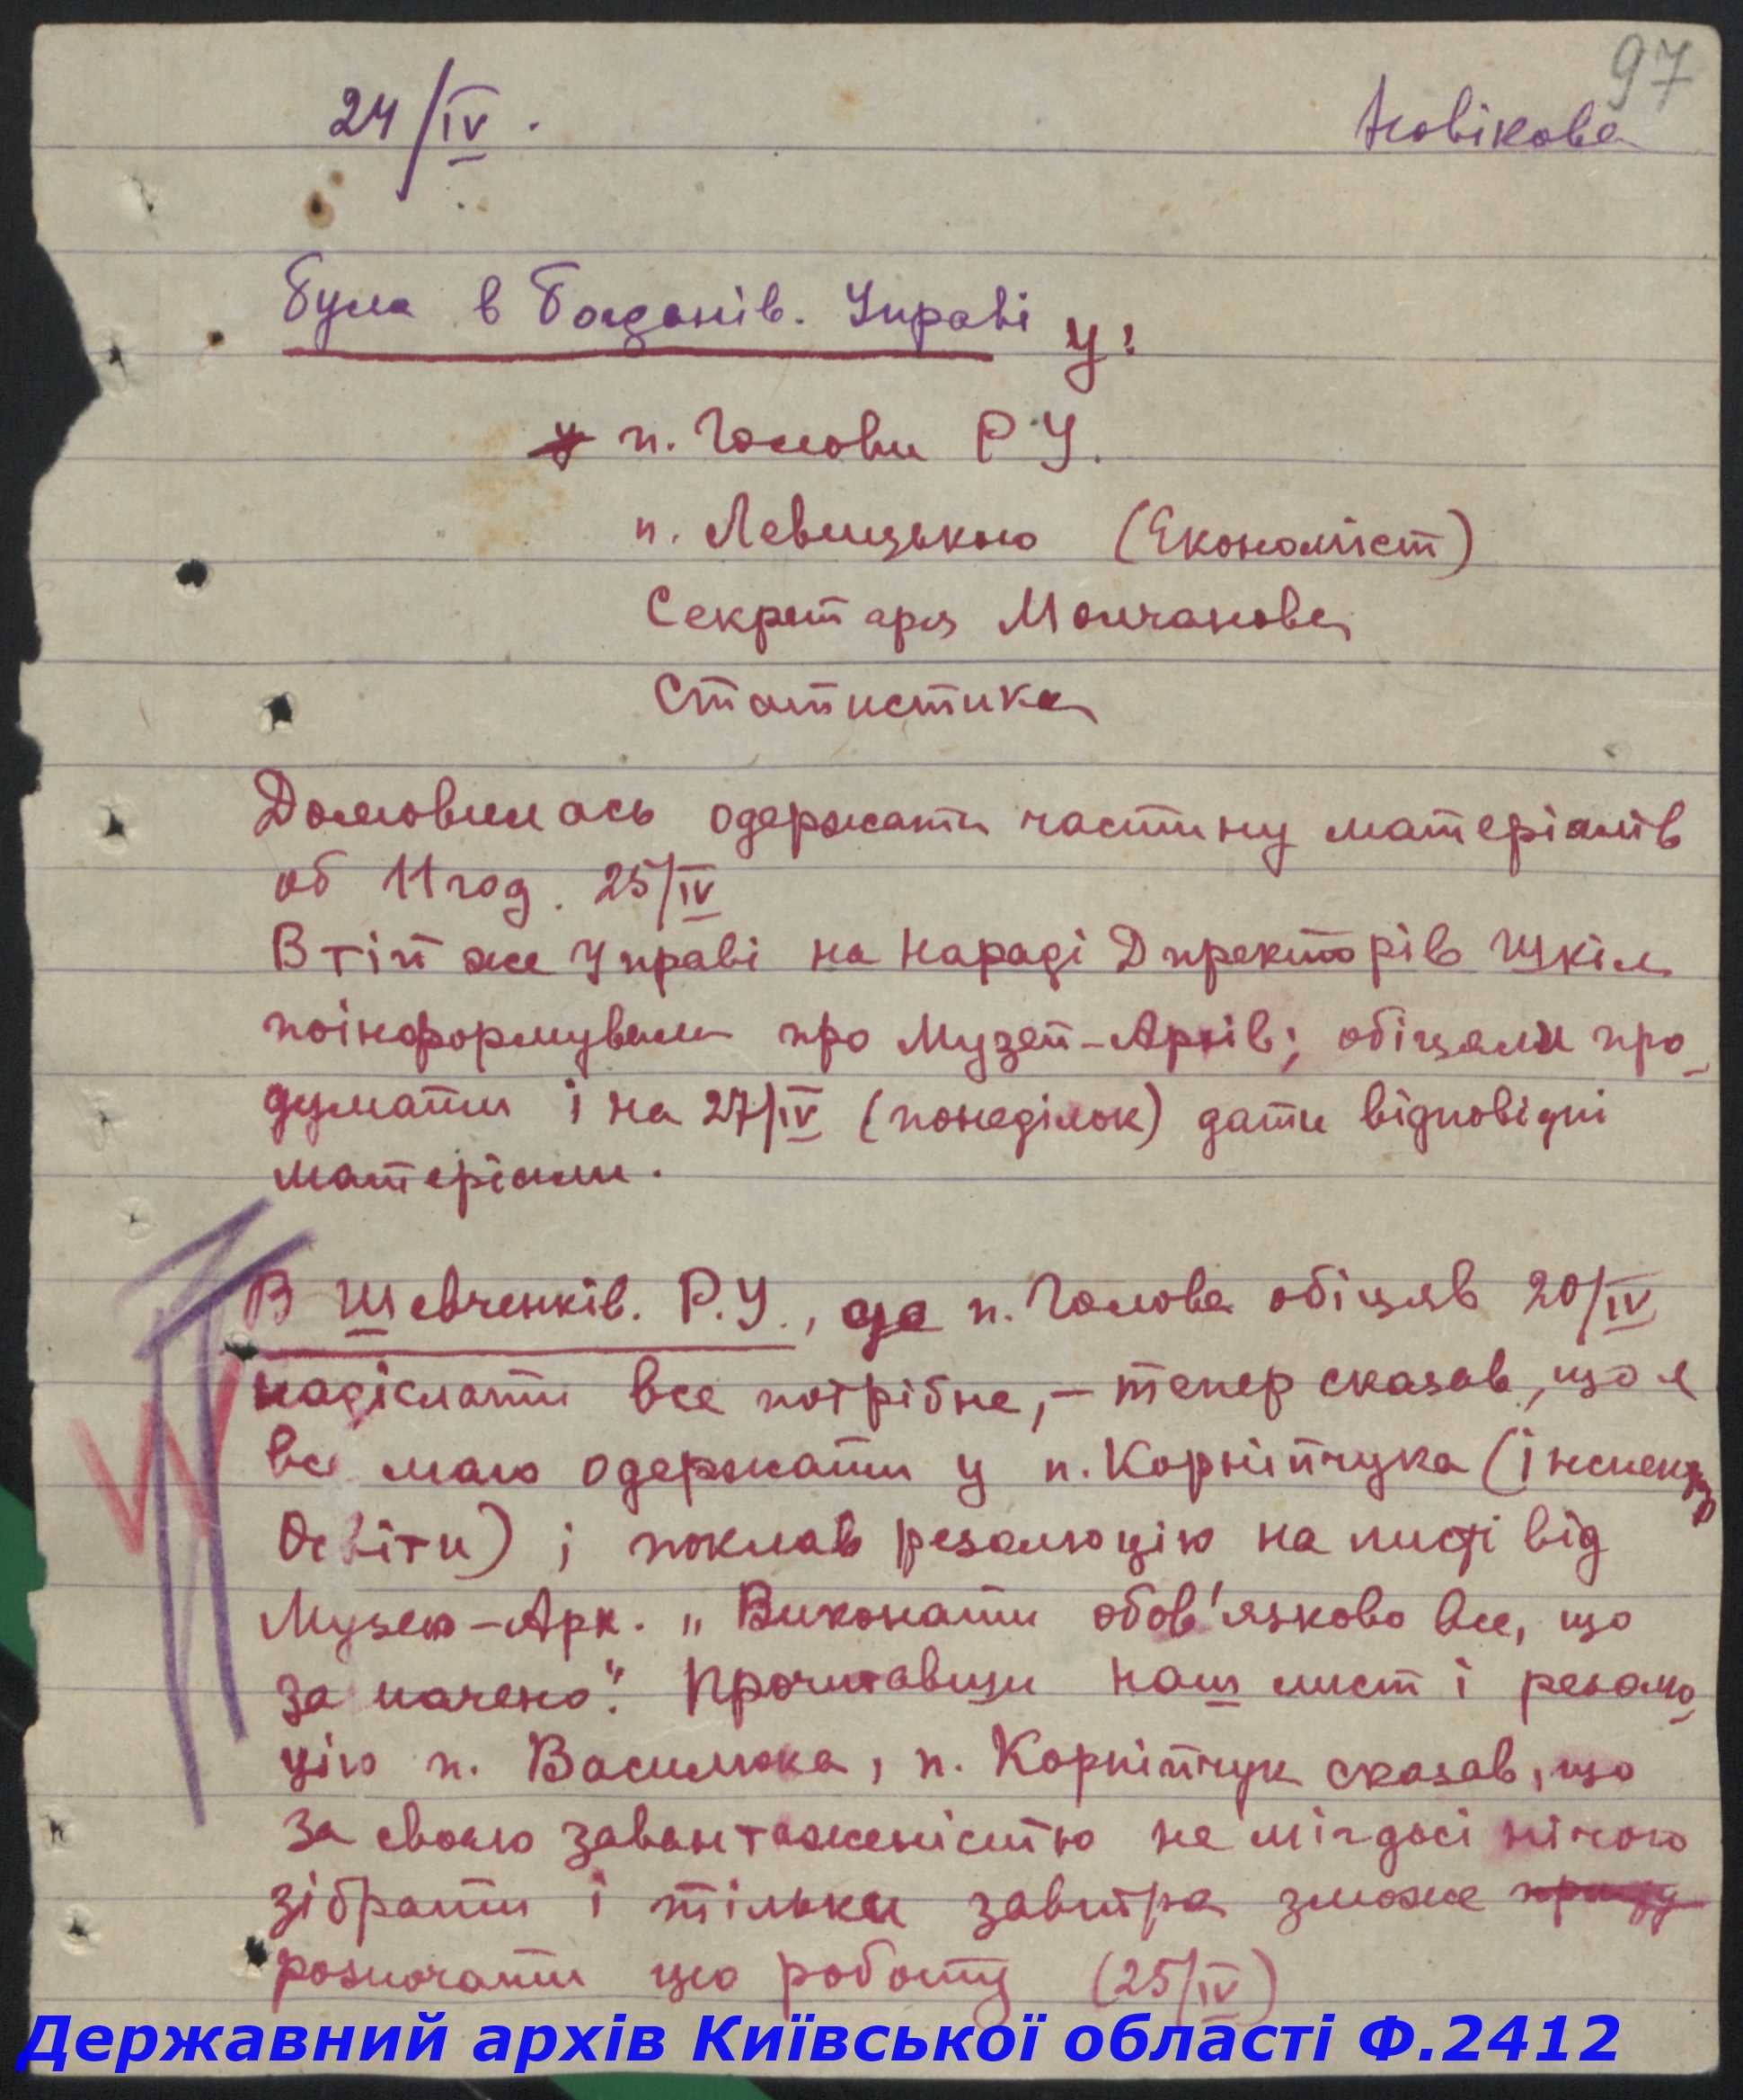 97
24/IV.
Новікова
Була в Богданів. Управі у:
п. Голови Р.У.
п. Левицького (Економіст)
Секретаря Молчанова
Статистика
Домовилась одержати частину матеріалів
об 11 год. 25/IV
В тій же Управі на нараді Директорів шкіл
поінформували про Музей-Архів; обіцяли про
думати і на 27/IV (понеділок) дати відповідні
матеріали.
В Шевченків. Р.У., де п. Голова обіцяв 20/IV
надіслати все потрібне, – тепер сказав, що я
все маю одержати у п. Корнійчука (інспектор
Освіти) і поклав резолюцію на листі від
Музею-Арх. „Виконати обов'язково все, що
зазначено". Прочитавши наш лист і резолю
цію п. Василюка, п. Корнійчук сказав, що
за своєю завантаженістю не міг досі нічого
зібрати і тільки завтра зможе
розпочати цю роботу (25/IV)
Державний архів Київської області Ф.2412